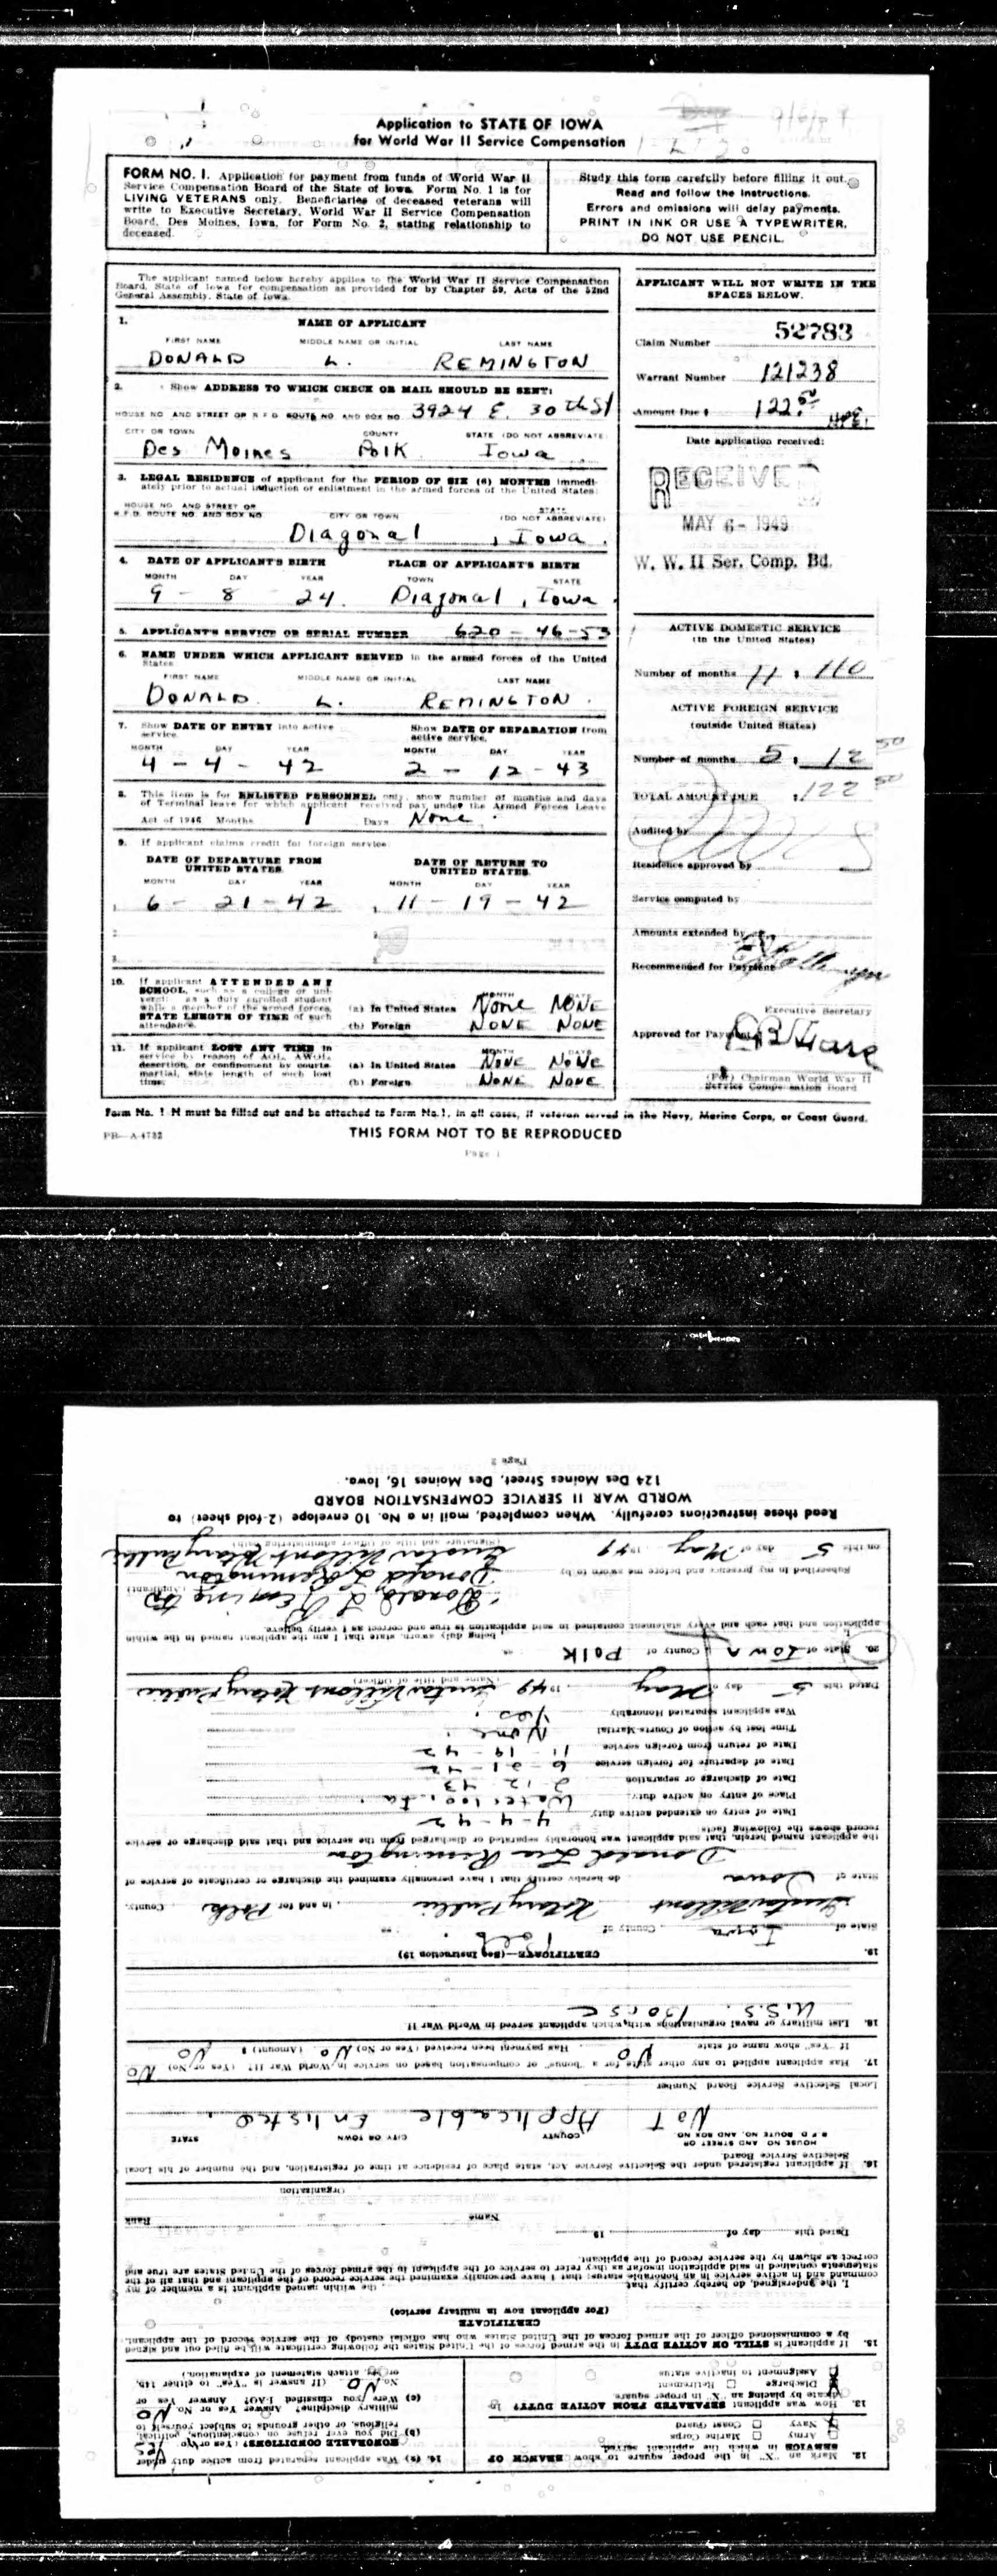 Application to STATE OF IOWA
for World War II Service Compensation
FORM NO. 1. Application for payment from funds of World War II
Service Compensation Board of the State of Iowa. Form No. 1 is for
LIVING VETERANS only. Beneficiaries of deceased veterans will
write to Executive Secretary, World War II Service Compensation
Board, Des Moines, Iowa, for Form No. 2, stating relationship to
deceased.
Study this form carefully before filling it out.
Read and follow the instructions.
Errors and omissions will delay payments.
PRINT IN INK OR USE A TYPEWRITER.
DO NOT USE PENCIL.
The applicant named below hereby applies to the World War II Service Compensation
Board, State of Iowa for compensation as provided for by Chapter 59, Acts of the 52nd
General Assembly, State of Iowa.
1. NAME OF APPLICANT
FIRST NAME MIDDLE NAME OR INITIAL LAST NAME
DONALD L. REMINGTON
2. Show ADDRESS TO WHICH CHECK OR MAIL SHOULD BE SENT:
HOUSE NO. AND STREET OR R.F.D. ROUTE NO. AND BOX NO. 3924 E. 30th St
CITY OR TOWN COUNTY STATE (DO NOT ABBREVIATE)
Des Moines Polk Iowa
3. LEGAL RESIDENCE of applicant for the PERIOD OF SIX (6) MONTHS immedi-
ately prior to actual induction or enlistment in the armed forces of the United States:
HOUSE NO. AND STREET OR
R.F.D. ROUTE NO. AND BOX NO. CITY OR TOWN STATE (DO NOT ABBREVIATE)
Diagonal, Iowa.
4. DATE OF APPLICANT'S BIRTH PLACE OF APPLICANT'S BIRTH
MONTH DAY YEAR TOWN STATE
9 - 8 24. Diagonal, Iowa
5. APPLICANT'S SERVICE OR SERIAL NUMBER 620-46-53
6. NAME UNDER WHICH APPLICANT SERVED in the armed forces of the United
States
FIRST NAME MIDDLE NAME OR INITIAL LAST NAME
DONALD. L. REMINGTON.
7. Show DATE OF ENTRY into active
service.
Show DATE OF SEPARATION from
active service.
MONTH DAY YEAR MONTH DAY YEAR
4 - 4 - 42 2 - 12 - 43
8. This item is for ENLISTED PERSONNEL only, show number of months and days
of Terminal leave for which applicant received pay under the Armed Forces Leave
Act of 1946 Months 1 Days None.
9. If applicant claims credit for foreign service:
DATE OF DEPARTURE FROM
UNITED STATES
DATE OF RETURN TO
UNITED STATES
MONTH DAY YEAR MONTH DAY YEAR
1. 6 - 21 - 42 1. 11 - 19 - 42
2. 2.
3. 3.
10. If applicant ATTENDED ANY
SCHOOL, such as a college or uni-
versity as a duly enrolled student
while a member of the armed forces,
STATE LENGTH OF TIME of such
attendance.
MONTH
(a) In United States None NONE
(b) Foreign NONE NONE
11. If applicant LOST ANY TIME in
service by reason of AOL, AWOL,
desertion, or confinement by courts-
martial, state length of such lost
time:
MONTH DAYS
(a) In United States NONE NONE
(b) Foreign NONE NONE
APPLICANT WILL NOT WRITE IN THE
SPACES BELOW.
Claim Number 52783
Warrant Number 121238
Amount Due $ 122.50
Date application received:
RECEIVED
MAY 6 - 1949
W. W. II Ser. Comp. Bd.
ACTIVE DOMESTIC SERVICE
(in the United States)
Number of months 11 $ 110
ACTIVE FOREIGN SERVICE
(outside United States)
Number of months 5 $ 12 50
TOTAL AMOUNT DUE $ 122 50
Audited by
Residence approved by
Service computed by
Amounts extended by
Recommended for Payment
Executive Secretary
Approved for Payment
(For) Chairman World War II
Service Compensation Board
Form No. 1-N must be filled out and be attached to Form No. 1, in all cases, if veteran served in the Navy, Marine Corps, or Coast Guard.
PB-A-4732
THIS FORM NOT TO BE REPRODUCED
Page 1
12. Mark an "X" in the proper square to show BRANCH OF
SERVICE in which the applicant served
Army Marine Corps
X Navy Coast Guard
13. How was applicant SEPARATED FROM ACTIVE DUTY? In-
dicate by placing an "X" in proper square
X Discharge Retirement
Assignment to inactive status
14. (a) Was applicant separated from active duty under
HONORABLE CONDITIONS? (Yes or No) Yes
(b) Did you ever refuse on conscientious, political,
religious, or other grounds to subject yourself to
military discipline? Answer Yes or No. NO
(c) Were you classified 1-AO? Answer Yes or
No. NO. (If answer is "Yes" to either 14b,
or 14c, attach statement of explanation.)
15. If applicant is STILL ON ACTIVE DUTY in the armed forces of the United States the following certificate will be filled out and signed
by a commissioned officer of the armed forces of the United States who has official custody of the service record of the applicant.
CERTIFICATE
(For applicant now in military service)
I, the undersigned, do hereby certify that the within named applicant is a member of my
command and in active service in an honorable status; that I have personally examined the service record of the applicant and that all of the
statements contained in said application insofar as they refer to service of the applicant in the armed forces of the United States are true and
correct as shown by the service record of the applicant.
Dated this day of 19
Name Rank
Organization
16. If applicant registered under the Selective Service Act, state place of residence at time of registration, and the number of his Local
Selective Service Board.
HOUSE NO. AND STREET OR
R F D ROUTE NO. AND BOX NO. COUNTY CITY OR TOWN STATE
Not Applicable Enlisted.
Local Selective Service Board Number
17. Has applicant applied to any other state for a "bonus" or compensation based on service in World War II? (Yes or No) No
If "Yes" show name of state NO Has payment been received (Yes or No) No (Amount) $ NO
18. List military or naval organizations with which applicant served in World War II
U.S.S. Borse
19. CERTIFICATE—(See Instruction 19)
State of Iowa County of Polk ss
Notary Public in and for Polk County,
State of Iowa do hereby certify that I have personally examined the discharge or certificate of service of
Donald Lee Remington
the applicant named herein, that said applicant was honorably separated or discharged from the service and that said discharge or service
record shows the following facts:
Date of entry on extended active duty 4-4-42
Place of entry on active duty Waterloo, Ia.
Date of discharge or separation 2-12-43
Date of departure for foreign service 6-21-42
Date of return from foreign service 11-19-42
Time lost by action of Courts-Martial None.
Was applicant separated Honorably Yes.
Dated this 5 day of May 1949 Notary Public
(Name and title of Officer)
20. State of IOWA County of Polk ss
being duly sworn, state that I am the applicant named in the within
application and that each and every statement contained in said application is true and correct as I verily believe.
Donald L Remington
Donald L Remington
(Applicant)
Subscribed in my presence and before me sworn to by
on this 5 day of May 1949 Notary Public
(Signature and title of Officer administering oath)
Read these instructions carefully. When completed, mail in a No. 10 envelope (2-fold sheet) to
WORLD WAR II SERVICE COMPENSATION BOARD
124 Des Moines Street, Des Moines 16, Iowa.
Page 2